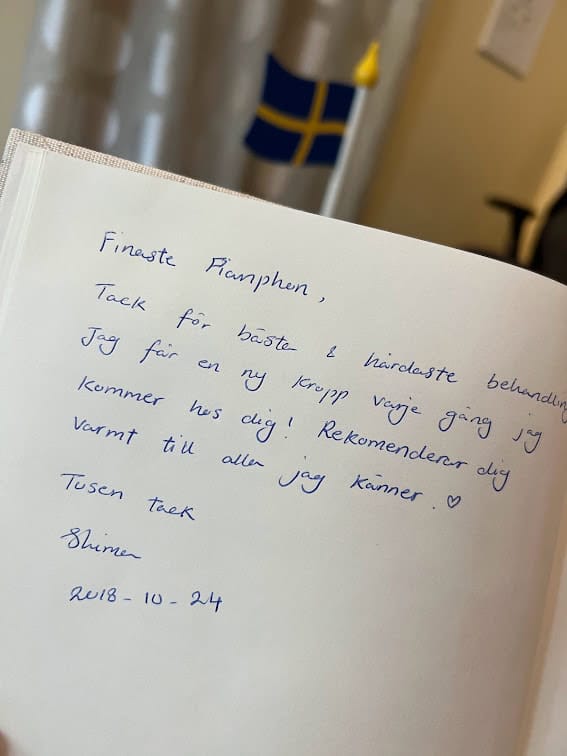 Finaste Pianphen,
Tack för bästa & hårdaste behandling
Jag får en ny kropp varje gång jag
kommer hos dig! Rekomenderar dig
varmt till alla jag känner. ♡
Tusen tack
Shima
2018-10-24